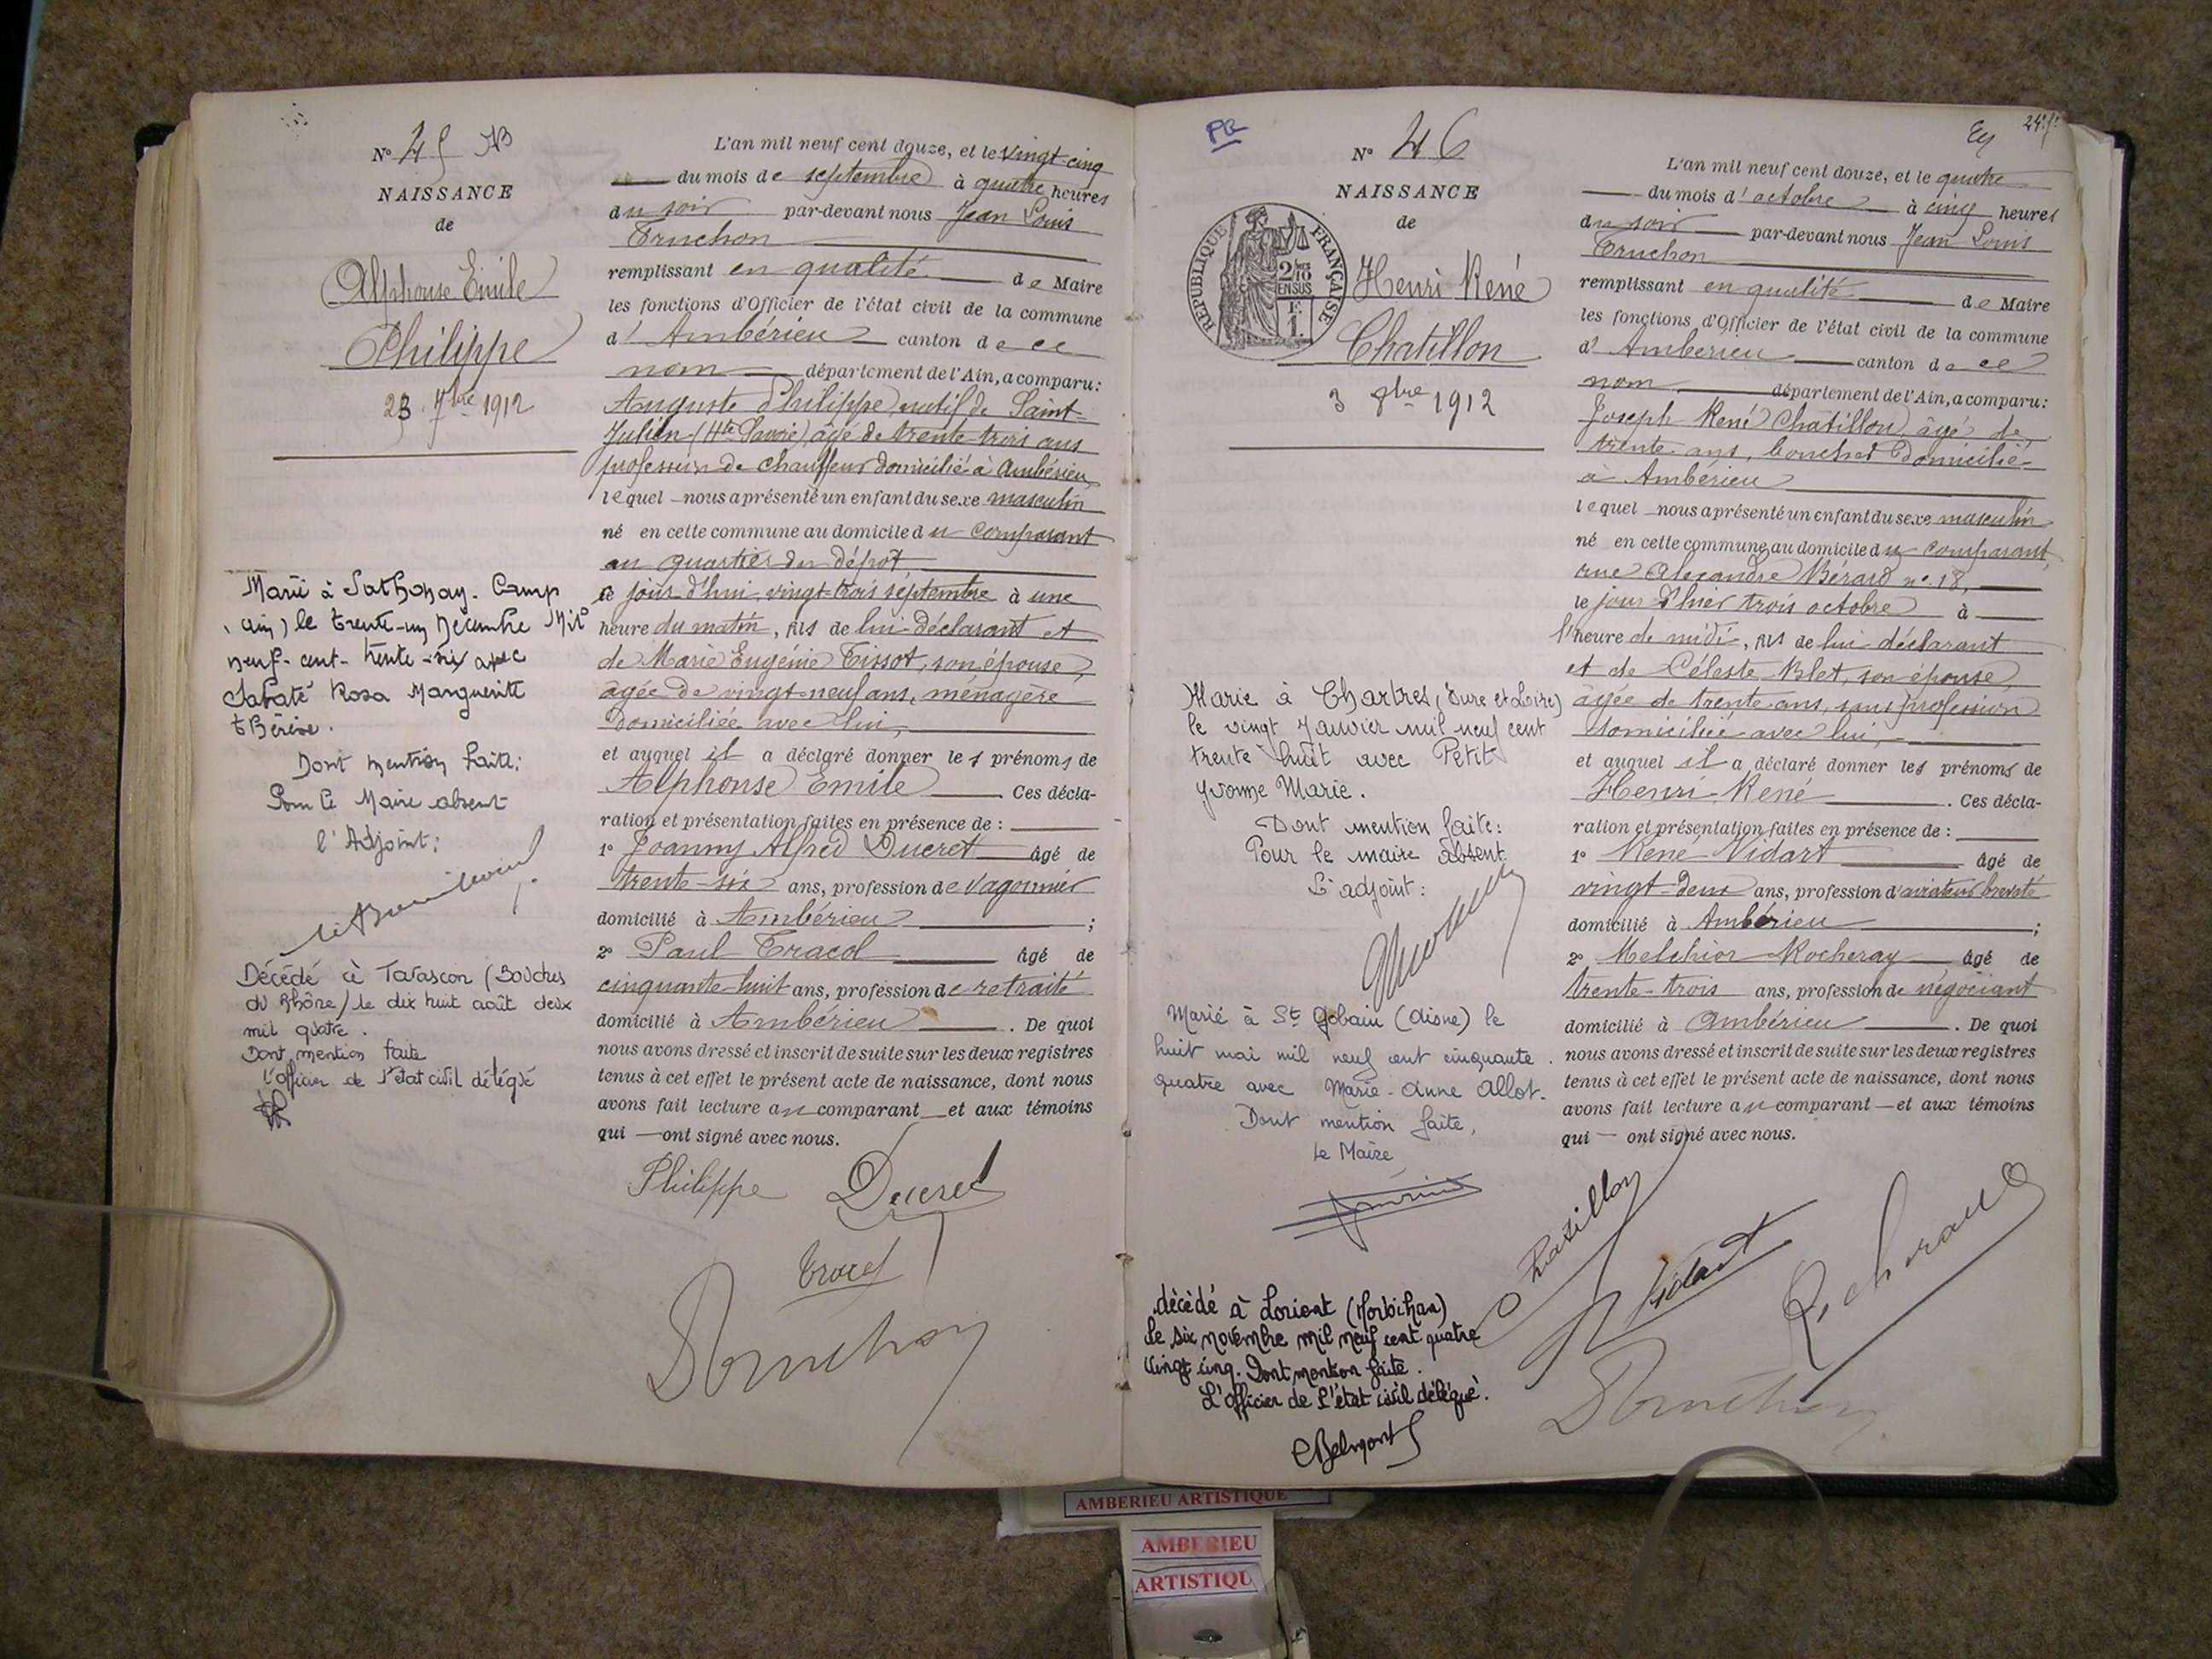 N° 45 AB
NAISSANCE
de
Alphonse Emile
Philippe
23 7bre 1912
Marié à Sathonay-Camp
(Ain) le trente-un décembre Mil
neuf-cent-trente-six avec
Sabaté Rosa Marguerite
thérèse.
Dont mention faite:
Pour le Maire absent
l'Adjoint:
Décédé à Tarascon (Bouches
du Rhône) le dix huit août deux
mil quatre.
Dont mention faite
l'officier de l'état civil délégué
L'an mil neuf cent douze, et le vingt-cinq
du mois de septembre à quatre heures
du soir par-devant nous Jean Louis
Truchon
remplissant en qualité de Maire
les fonctions d'Officier de l'état civil de la commune
d'Ambérieu canton de ce
nom département de l'Ain, a comparu:
Auguste Philippe, natif de Saint-
Julien (Hte Savoie) âgé de trente-trois ans
profession de chauffeur domicilié à Ambérieu,
lequel nous a présenté un enfant du sexe masculin
né en cette commune au domicile du comparant
au quartier du dépôt
le jour d'hui, vingt-trois septembre à une
heure du matin, fils de lui déclarant et
de Marie Eugénie Tissot, son épouse,
âgée de vingt-neuf ans, ménagère
domiciliée avec lui,
et auquel il a déclaré donner les prénoms de
Alphonse Emile Ces décla-
ration et présentation faites en présence de :
1° Joanny Alfred Ducret âgé de
trente-six ans, profession de vagonnier
domicilié à Ambérieu ;
2° Paul Tracol âgé de
cinquante-huit ans, profession de retraité
domicilié à Ambérieu . De quoi
nous avons dressé et inscrit de suite sur les deux registres
tenus à cet effet le présent acte de naissance, dont nous
avons fait lecture au comparant et aux témoins
qui ont signé avec nous.
Philippe Ducret
Tracol
Truchon
PB
N° 46
NAISSANCE
de
REPUBLIQUE FRANÇAISE
2/10
EN SUS
1 F.
Henri René
Chatillon
3 8bre 1912
Marié à Chartres (Eure et Loire)
le vingt Janvier mil neuf cent
trente huit avec Petit
Yvonne Marie.
Dont mention faite:
Pour le maire absent
L'adjoint:
Marié à St Gobain (Aisne) le
huit mai mil neuf cent cinquante
quatre avec Marie-Anne Allot.
Dont mention faite,
Le Maire
décédé à Lorient (Morbihan)
le six novembre mil neuf cent quatre
vingt cinq. Dont mention faite.
L'officier de l'état civil délégué.
Belmont
24
L'an mil neuf cent douze, et le quatre
du mois d'octobre à cinq heures
du soir par-devant nous Jean Louis
Truchon
remplissant en qualité de Maire
les fonctions d'Officier de l'état civil de la commune
d'Ambérieu canton de ce
nom département de l'Ain, a comparu:
Joseph René Chatillon, âgé de
trente ans, boucher domicilié
à Ambérieu
lequel nous a présenté un enfant du sexe masculin
né en cette commune au domicile du comparant,
rue Alexandre Bérard n° 18,
le jour d'hier trois octobre à
l'heure de midi, fils de lui déclarant
et de Céleste Blet, son épouse,
âgée de trente ans, sans profession
domiciliée avec lui,
et auquel il a déclaré donner les prénoms de
Henri René . Ces décla-
ration et présentation faites en présence de :
1° René Vidart âgé de
vingt-deux ans, profession d'aviateur breveté
domicilié à Ambérieu ;
2° Melchior Rocheray âgé de
trente-trois ans, profession de négociant
domicilié à Ambérieu . De quoi
nous avons dressé et inscrit de suite sur les deux registres
tenus à cet effet le présent acte de naissance, dont nous
avons fait lecture au comparant et aux témoins
qui ont signé avec nous.
Chatillon
R Vidart
Rocheray
Truchon
AMBERIEU ARTISTIQUE
AMBERIEU
ARTISTIQU